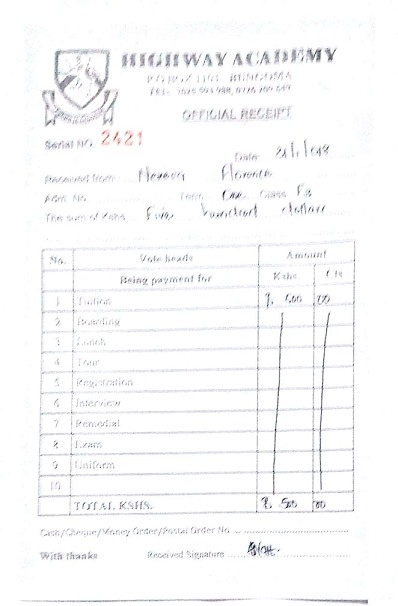 HIGHWAY ACADEMY
P.O BOX BUNGOMA
OFFICIAL RECEIPT
Serial NO. 2421
Date
Received from Florence
Adm. No. Term One Class
The sum of Kshs. Five hundred dollars
No. Vote heads Amount
Being payment for Kshs Cts
1 Tuition 500 00
2 Boarding
3 Lunch
4 Tour
5 Registration
6 Interview
7 Remedial
8 Exam
9 Uniform
10
TOTAL KSHS. 500 00
Cash/Cheque/Money Order/Postal Order No.
With thanks Received Signature